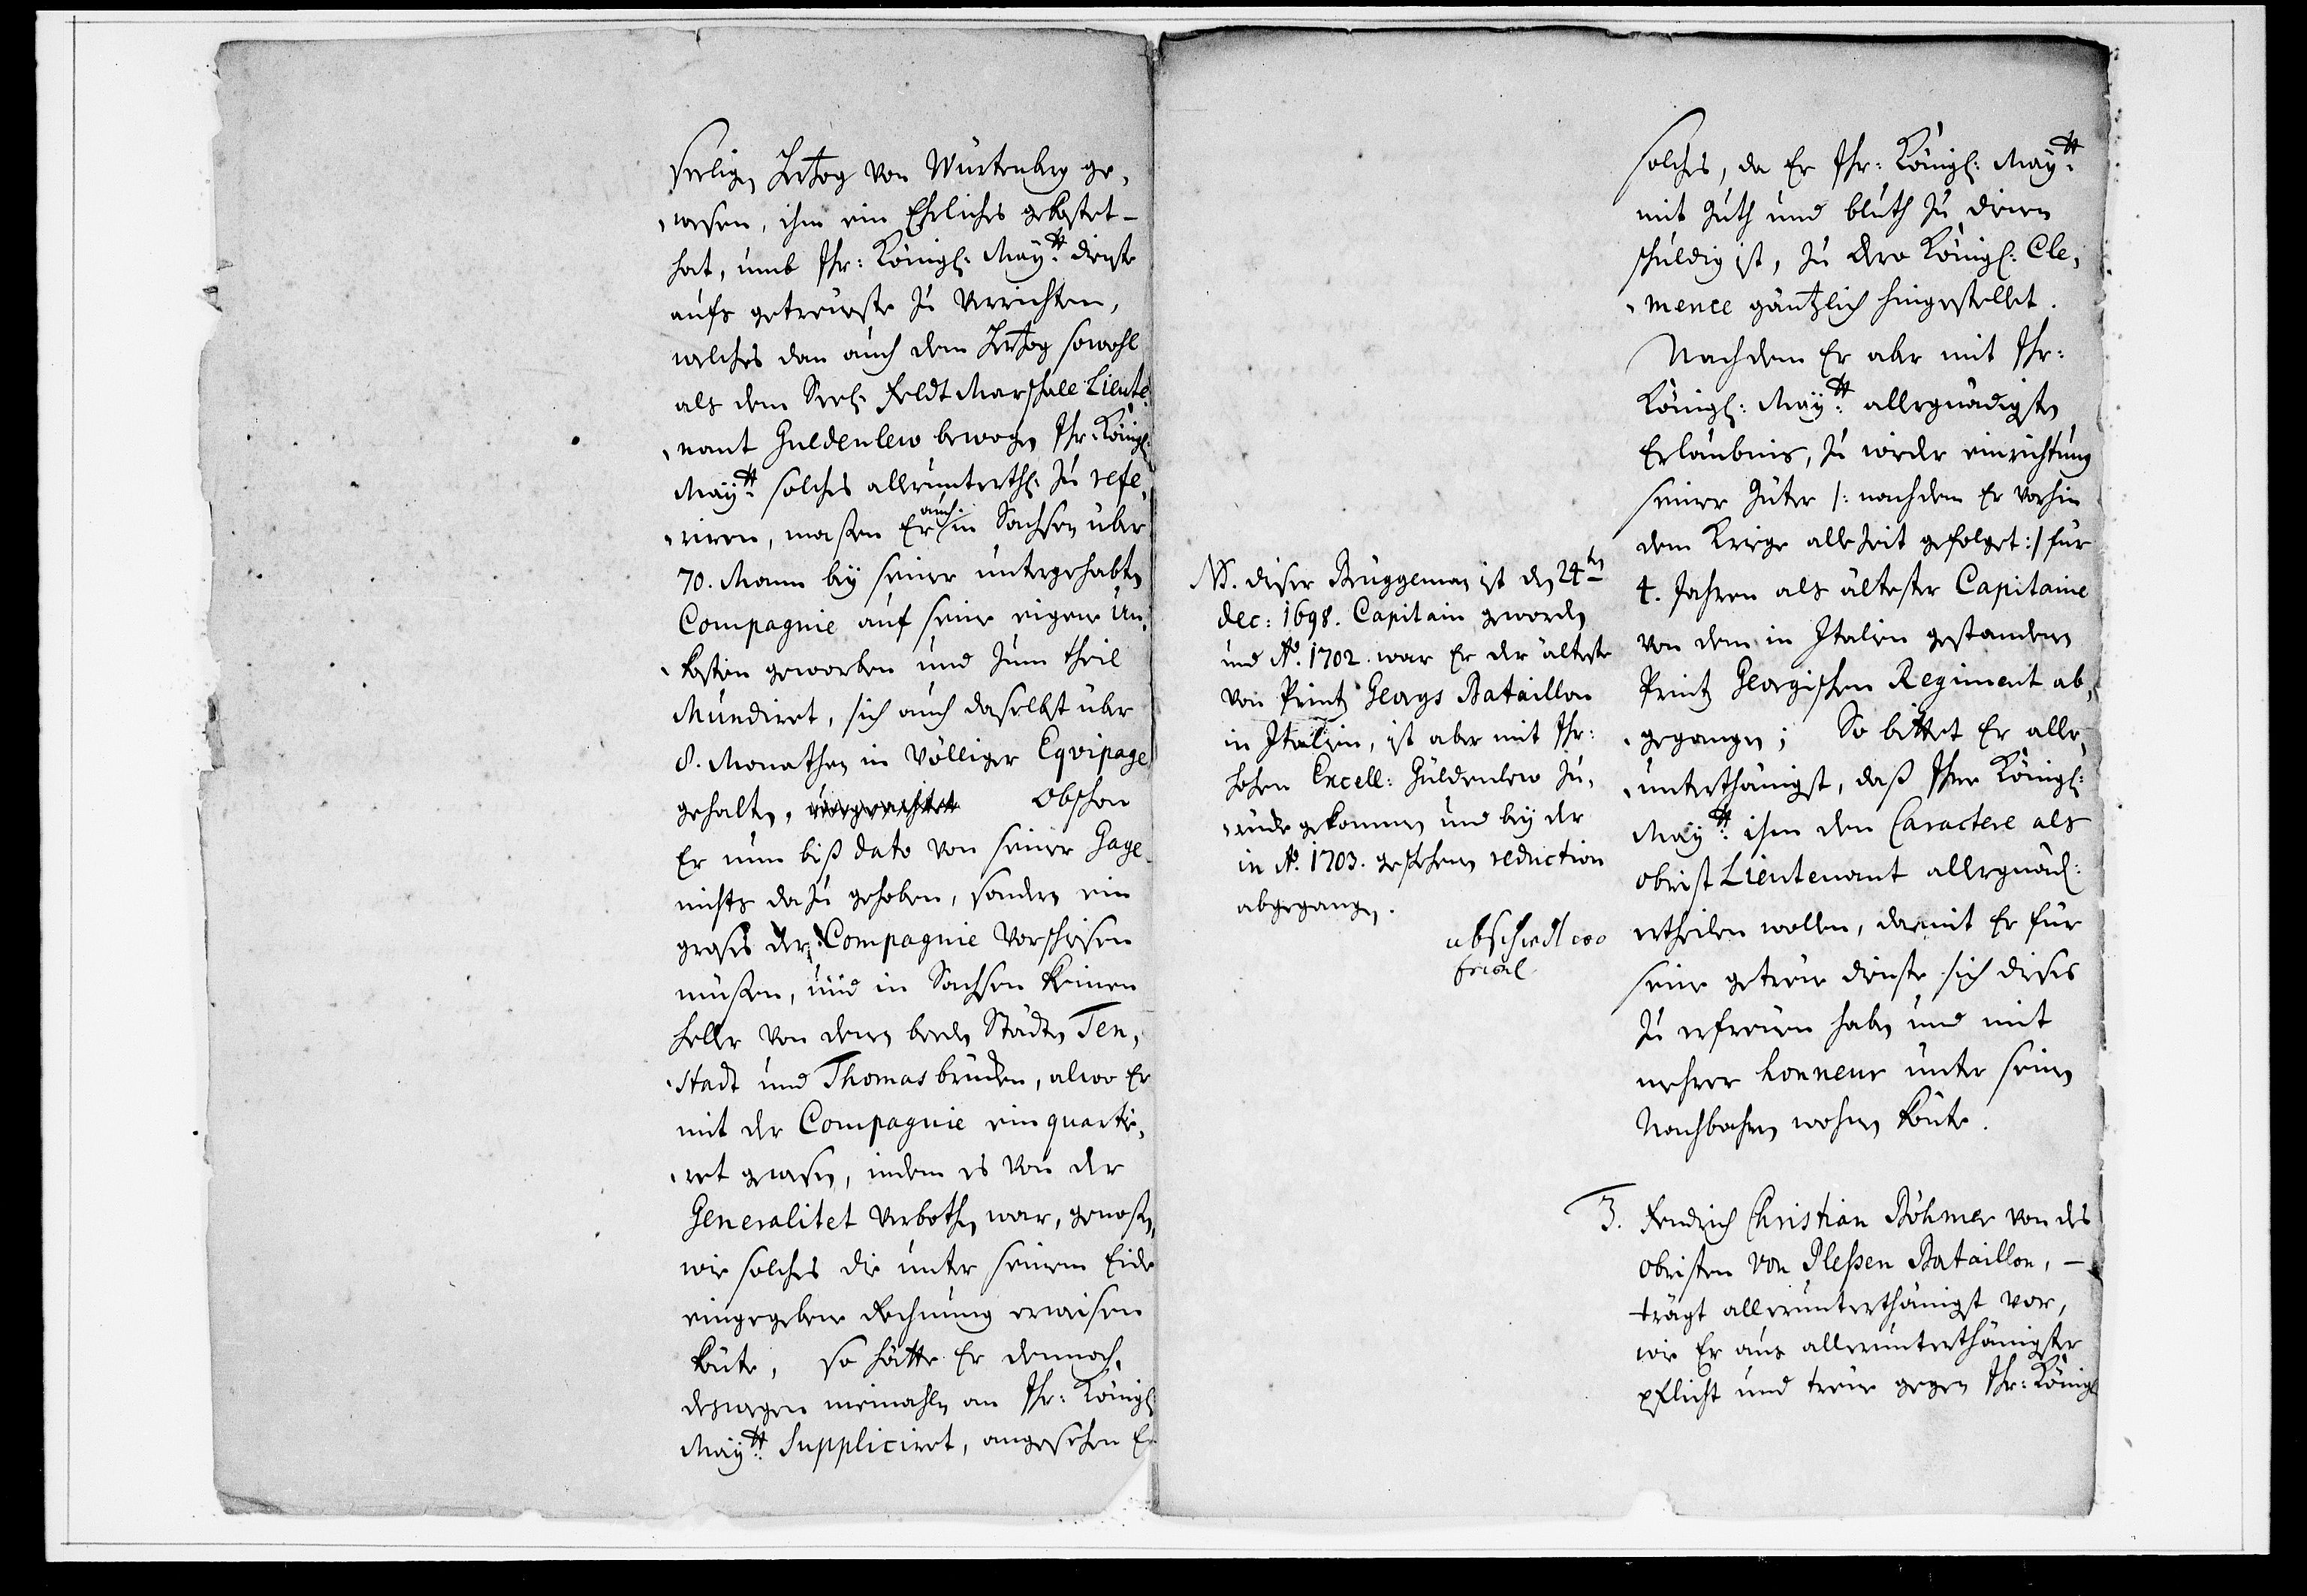 seeligen Hertzog von Würtenberg ge,
wesen, ihm ein Ehrliches gekostet
hat, umb Ihr: Königl: Maÿtt: dienste
aufs getreüeste zu verrichten,
welches dan auch den Hertzog sowohl
als den Seel: FeldtMarschall Lieute,
nant Guldenlew bewogen Ihr: Königl:
Maÿtt: solches allerunterth: zu refe,
riren, maßen Er auch in Sachsen über
70. Mann beÿ seiner untergehabten
Compagnie auf seine eigene Un,
kosten geworben und zum theil
Mundiret, sich auch daselbst über
8. Monathen in völliger Eqvipage
gehalten, Obschon
Er nun biß dato von seiner Gage
nichts dazu gehoben, sondern ein
großes der Compagnie vorschießen
müßen, und in Sachsen keinen
heller von denen beeden Städten Ten,
stadt und Thomasbrücken, alwo Er
mit der Compagnie ein quarti,
ret gewesen, indem es von der
Generalitet verbothen war, genoßen,
wie solches die unter seinem Eide
eingegebene Rechnung erweisen
könte, so hätte Er dennoch
deswegen niemahlen an Ihr: Königl:
Maÿtt: Suppliciret, angesehen Er
NB. dieser Brüggeman ist den 24ten
dec: 1698. Capitain geworden
und Ao. 1702. war Er der älteste
von Printz Georgs Bataillon
in Italien, ist aber mit Ihr:
hohen Excell: Güldenlew zu,
rücke gekommen und beÿ der
in Ao. 1703. geschehenen reduction
abgegangen.
abschiedt
solches, da Er Ihr: Königl: Maÿtt:
mit Guth und bluth zu dienen
schuldig ist, zu dero Königl: Cle,
mence gäntzlich hingestellet.
Nachdem Er aber mit Ihr:
Königl: Maÿtt: allergnädigsten
Erlaubnis, zu wieder einrichtung
seiner Güter /: nachdem Er vorhin
dem Kriege allezeit gefolget :/ für
4. Jahren als ältester Capitaine
von dem in Italien gestandenen
Printz Georgischen Regiment ab,
gegangen; So bittet Er aller,
unterthänigst, daß Ihre Königl:
Maÿtt: ihm den Caractere als
obrist Lieutenant allergnäd:
ertheilen wollen, damit Er für
seine getreüe dienste sich dieses
zu erfreüen haben und mit
mehrer honneur unter seinen
Nachbahren wohnen könte.
3. Fendrich Christian Böhmer von des
obristen von Pleßen Bataillon,
trägt allerunterthänigst vor,
wie Er aus allerunterthänigster
pflicht und treüe gegen Ihr: Königl